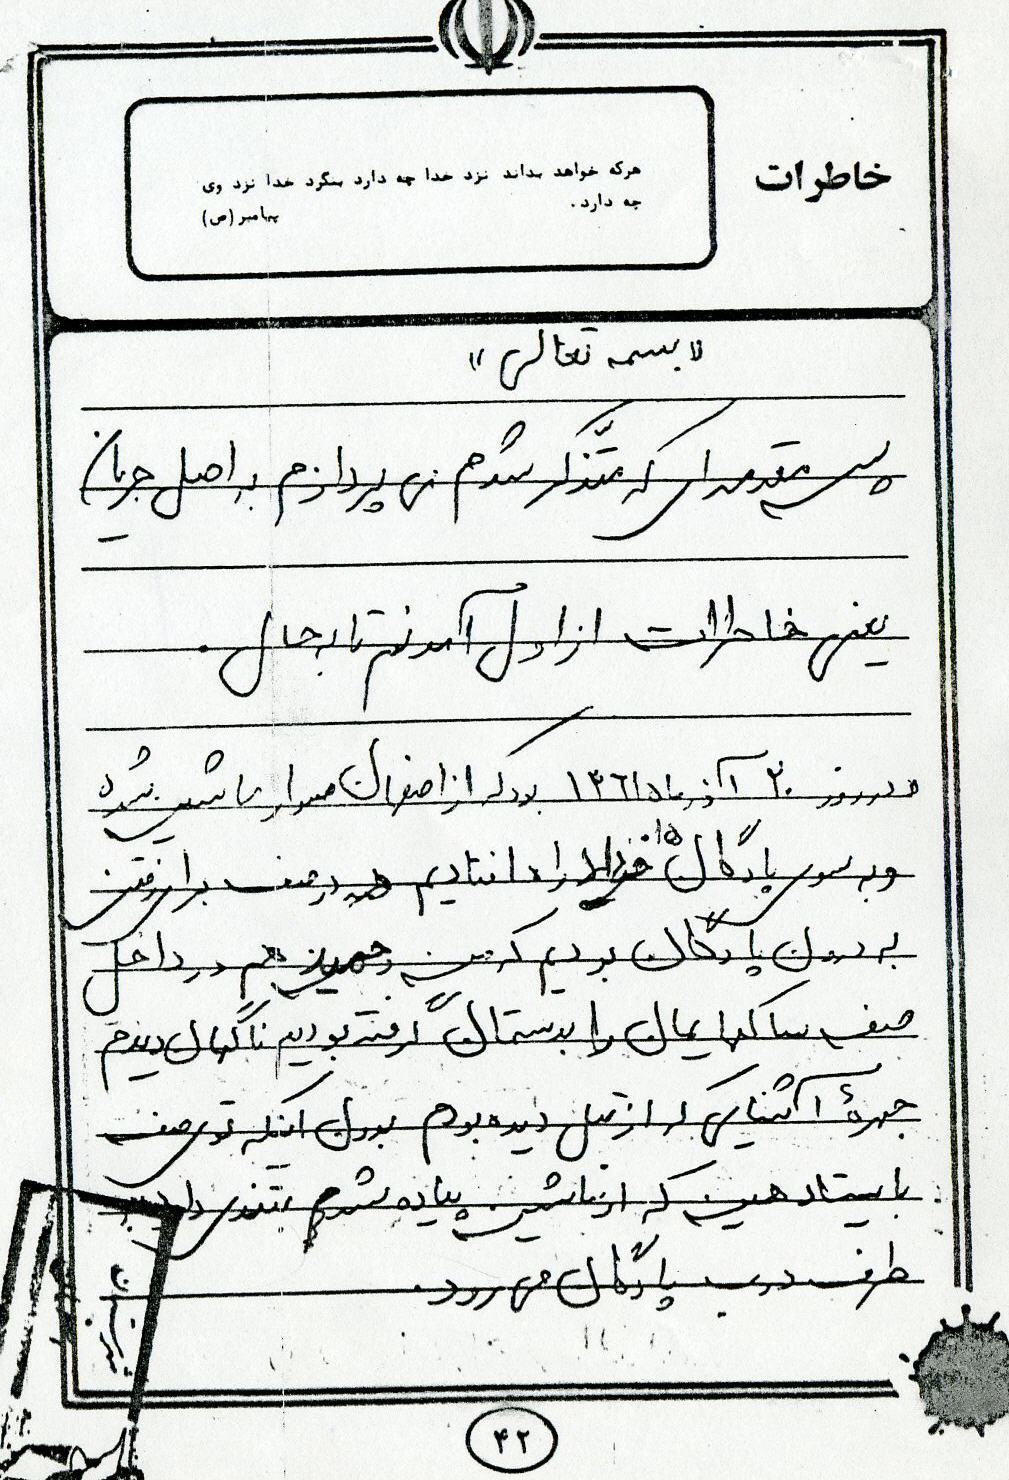 خاطرات
هرکه خواهد بداند نزد خدا چه دارد بنگرد خدا نزد وی
چه دارد.
پیامبر (ص)
«بسمه تعالی»
پس مقدمه ای که متذکر شدم می پردازم به اصل جریان
یعنی خاطرات از اول آمدنم تا به حال.
در روز ۲۰ آذر ماه ۱۳۶۱ بود که از اصفهان سوار ماشین شده
و به سوی پادگان ۱۵ خرداد راه افتادیم در صف برای رفتن
به درون پادگان بودیم که من و حمید هم در داخل
صف ساکهایمان را بدستمان گرفته بودیم ناگهان دیدم
چهرهٔ آشنایی که از قبل دیده بودم بدون اینکه توی صف
بایستاد همین که از ماشین پیاده شدم بتندی دارد به
طرف درب پادگان می رود.
۴۲